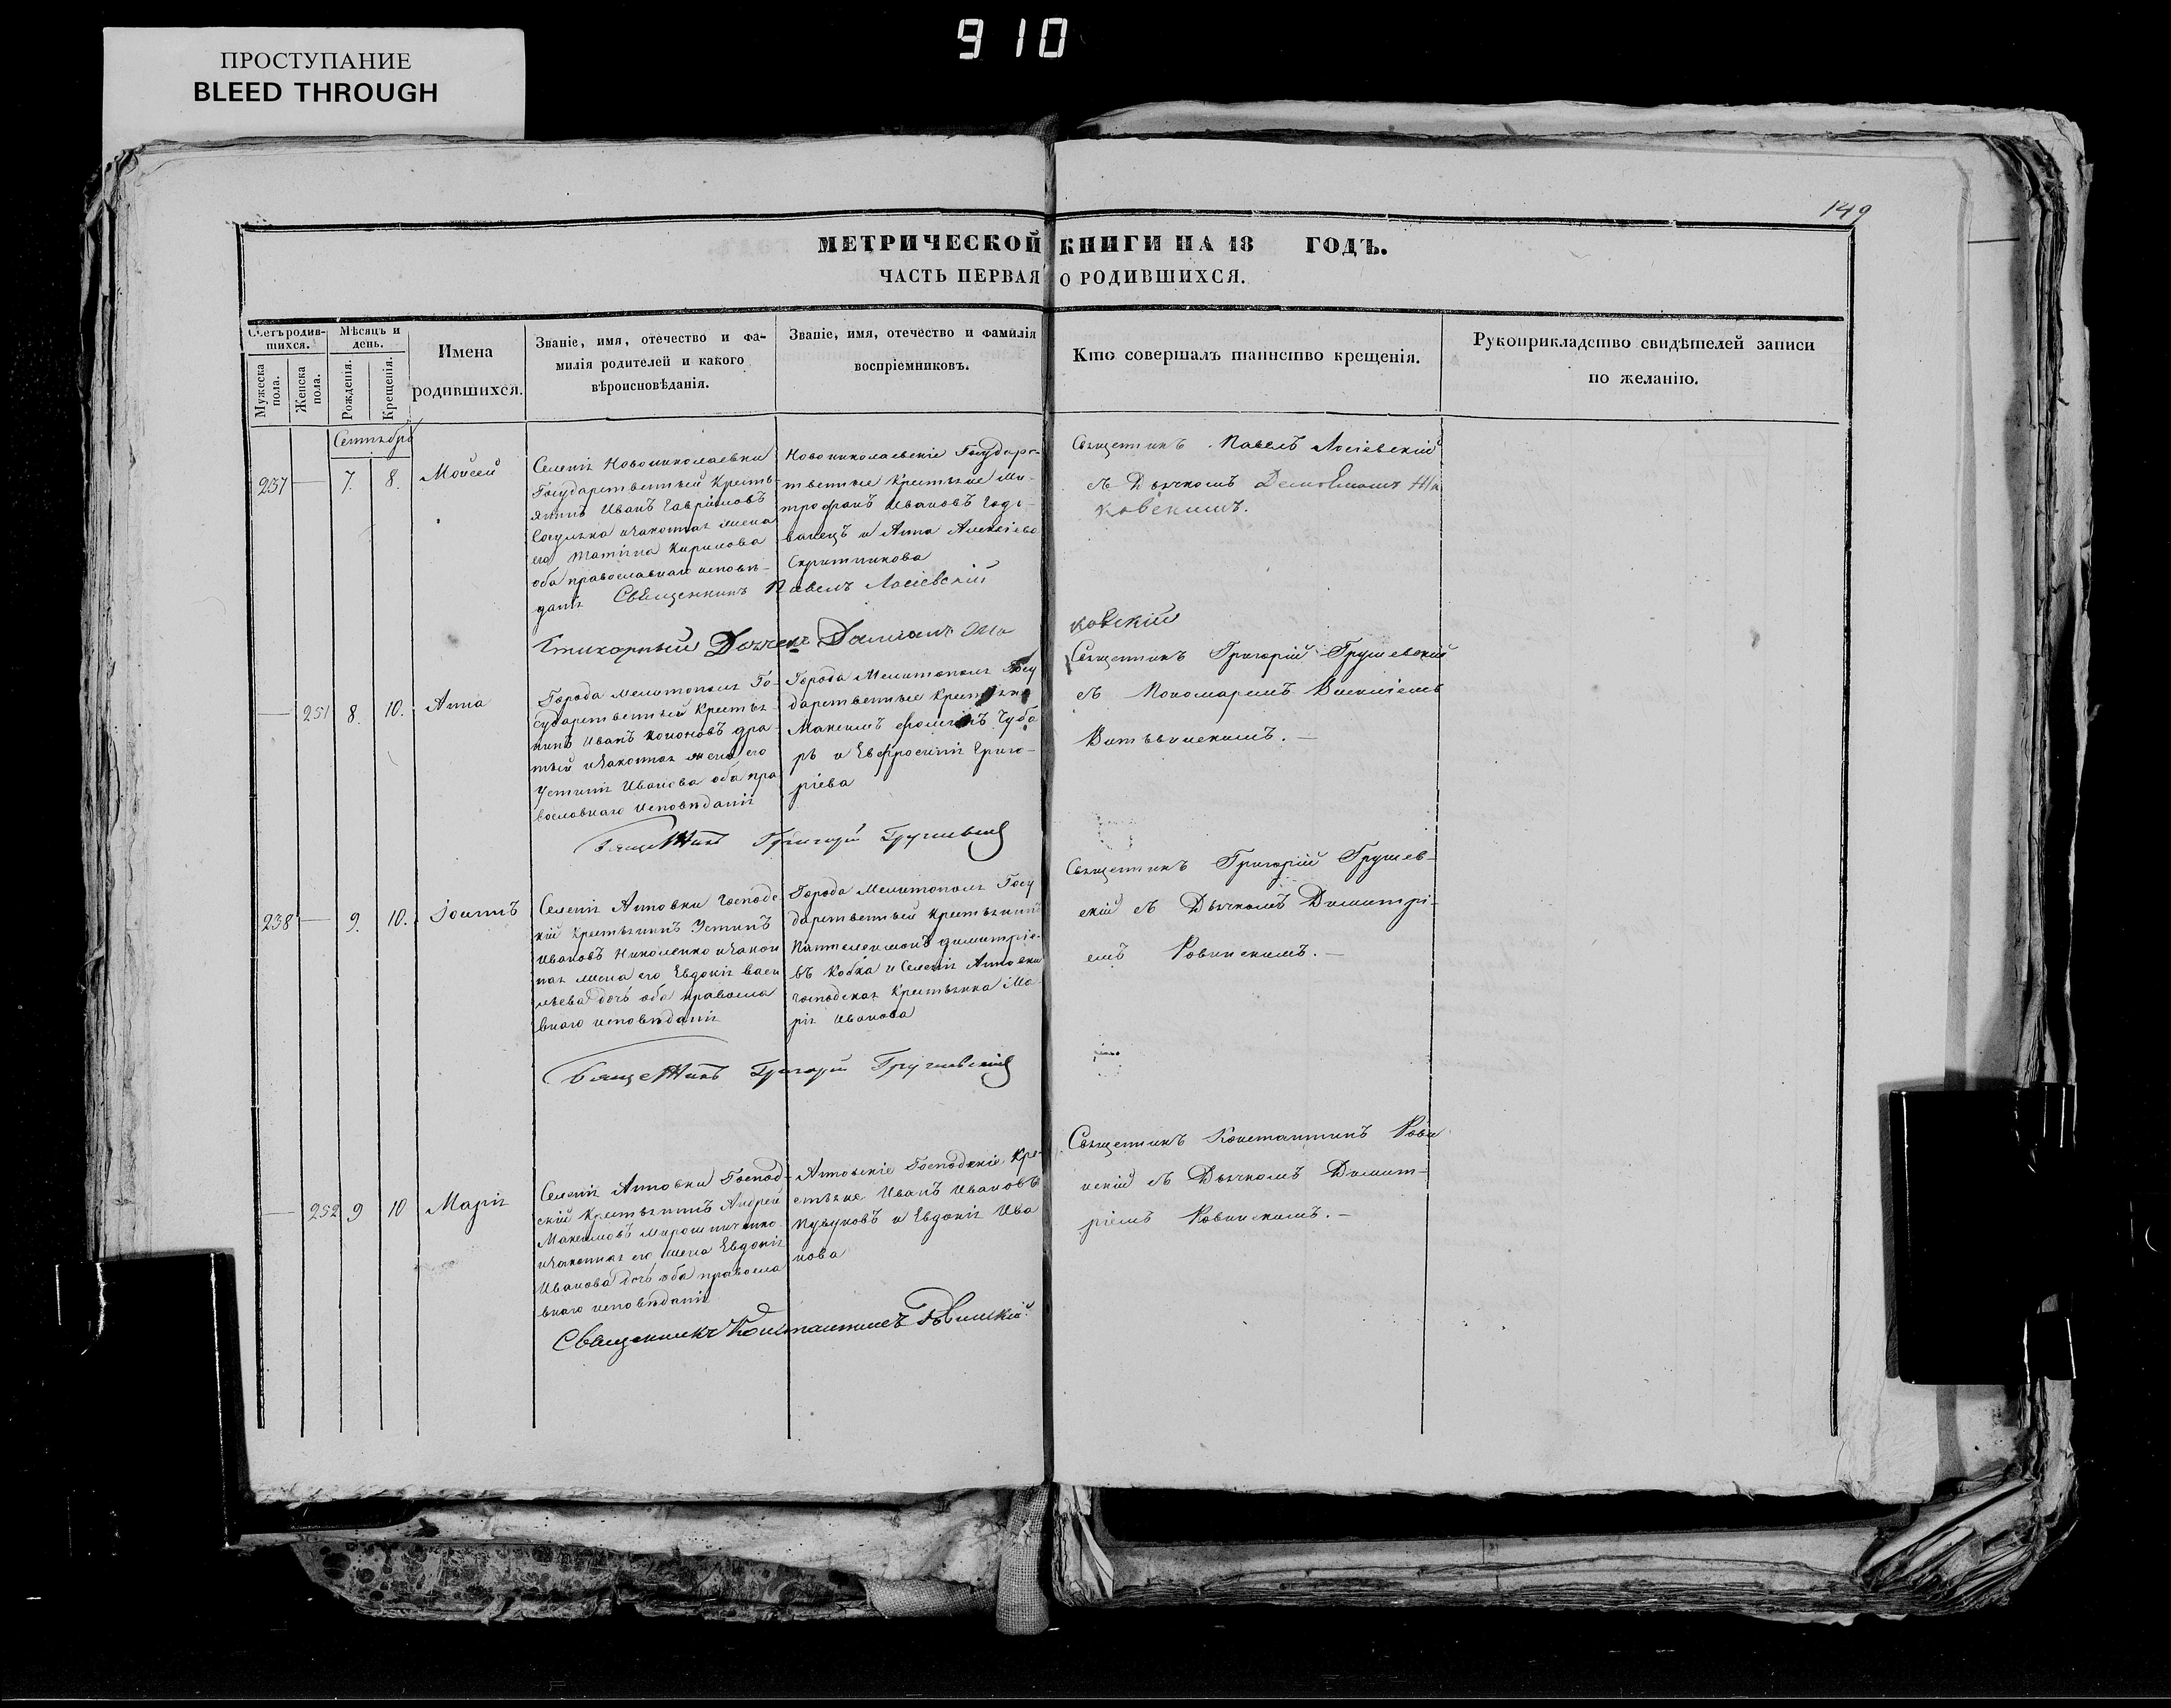 910
ПРОСТУПАНИЕ
BLEED THROUGH
149
МЕТРИЧЕСКОЙ КНИГИ НА 18 ГОДЪ.
ЧАСТЬ ПЕРВАЯ О РОДИВШИХСЯ.
Счетъ родив-
шихся.
Мужеска пола.
Женска пола.
Мѣсяцъ и
день.
Рожденія.
Крещенія.
Имена
родившихся.
Званіе, имя, отечество и фа-
милія родителей и какого
вѣроисповѣданія.
Званіе, имя, отечество и фамилія
воспріемниковъ.
Кто совершалъ таинство крещенія.
Рукоприкладство свидѣтелей записи
по желанію.
Сентябрь
237 — 7. 8. Моѵсей
Селенія Новониколаевки
Государственный кресть-
янинъ Иванъ Гавріиловъ
и законная жена
его Татіяна Кирилова
оба православнаго исповѣ-
данія
Новониколаевскіе Государс-
твенные крестьяне Ми-
трофанъ Ивановъ Годо-
ванецъ и Анна Алексѣева
Скрипникова
Священникъ Павелъ Лосіевскій
съ Дьячкомъ
ковскимъ.
Священникъ Павелъ Лосіевскій
Стихарный Дьячекъ Даміанъ
ковскій
— 251 8. 10. Анна
Города Мелитополя Го-
сударственный крестья-
нинъ Иванъ Кононовъ
и законная жена его
Устинія Иванова оба пра
вославнаго исповѣданія
Города Мелитополя Госу
дарственные крестьяне
Максимъ Чуба
ръ и Евфросинія Григо-
ріева
Священникъ Григорій Грушевскій
съ Пономаремъ Василіемъ
Священникъ Григорій Грушевскій
238 — 9. 10. Іоаннъ
Селенія Анновки Господс
кій крестьянинъ Устинъ
Ивановъ Николенко и закон
ная жена его Евдокія Васи
льева дочь оба правосла
внаго исповѣданія
Города Мелитополя Госу
дарственный крестьянинъ
Пантелеимонъ Димитріе-
въ Кобка и Селенія Анновки
господская крестьянка Ма-
рія Иванова
Священникъ Григорій Грушев-
скій съ Дьячкомъ Димитрі-
емъ Ровинскимъ. —
Священникъ Григорій Грушевскій
— 252 9 10 Марія
Селенія Анновки Господ-
скій крестьянинъ Андрей
Максимовъ Мирошниченко
и законная его жена Евдокія
Иванова дочь оба правосла
внаго исповѣданія
Анновскіе Господскіе кре-
стьяне Иванъ Ивановъ
и Евдокія Ива
нова
Священникъ Константинъ Рови
нскій съ Дьячкомъ Димит-
ріемъ Ровинскимъ. —
Священникъ Константинъ Ровинскій.